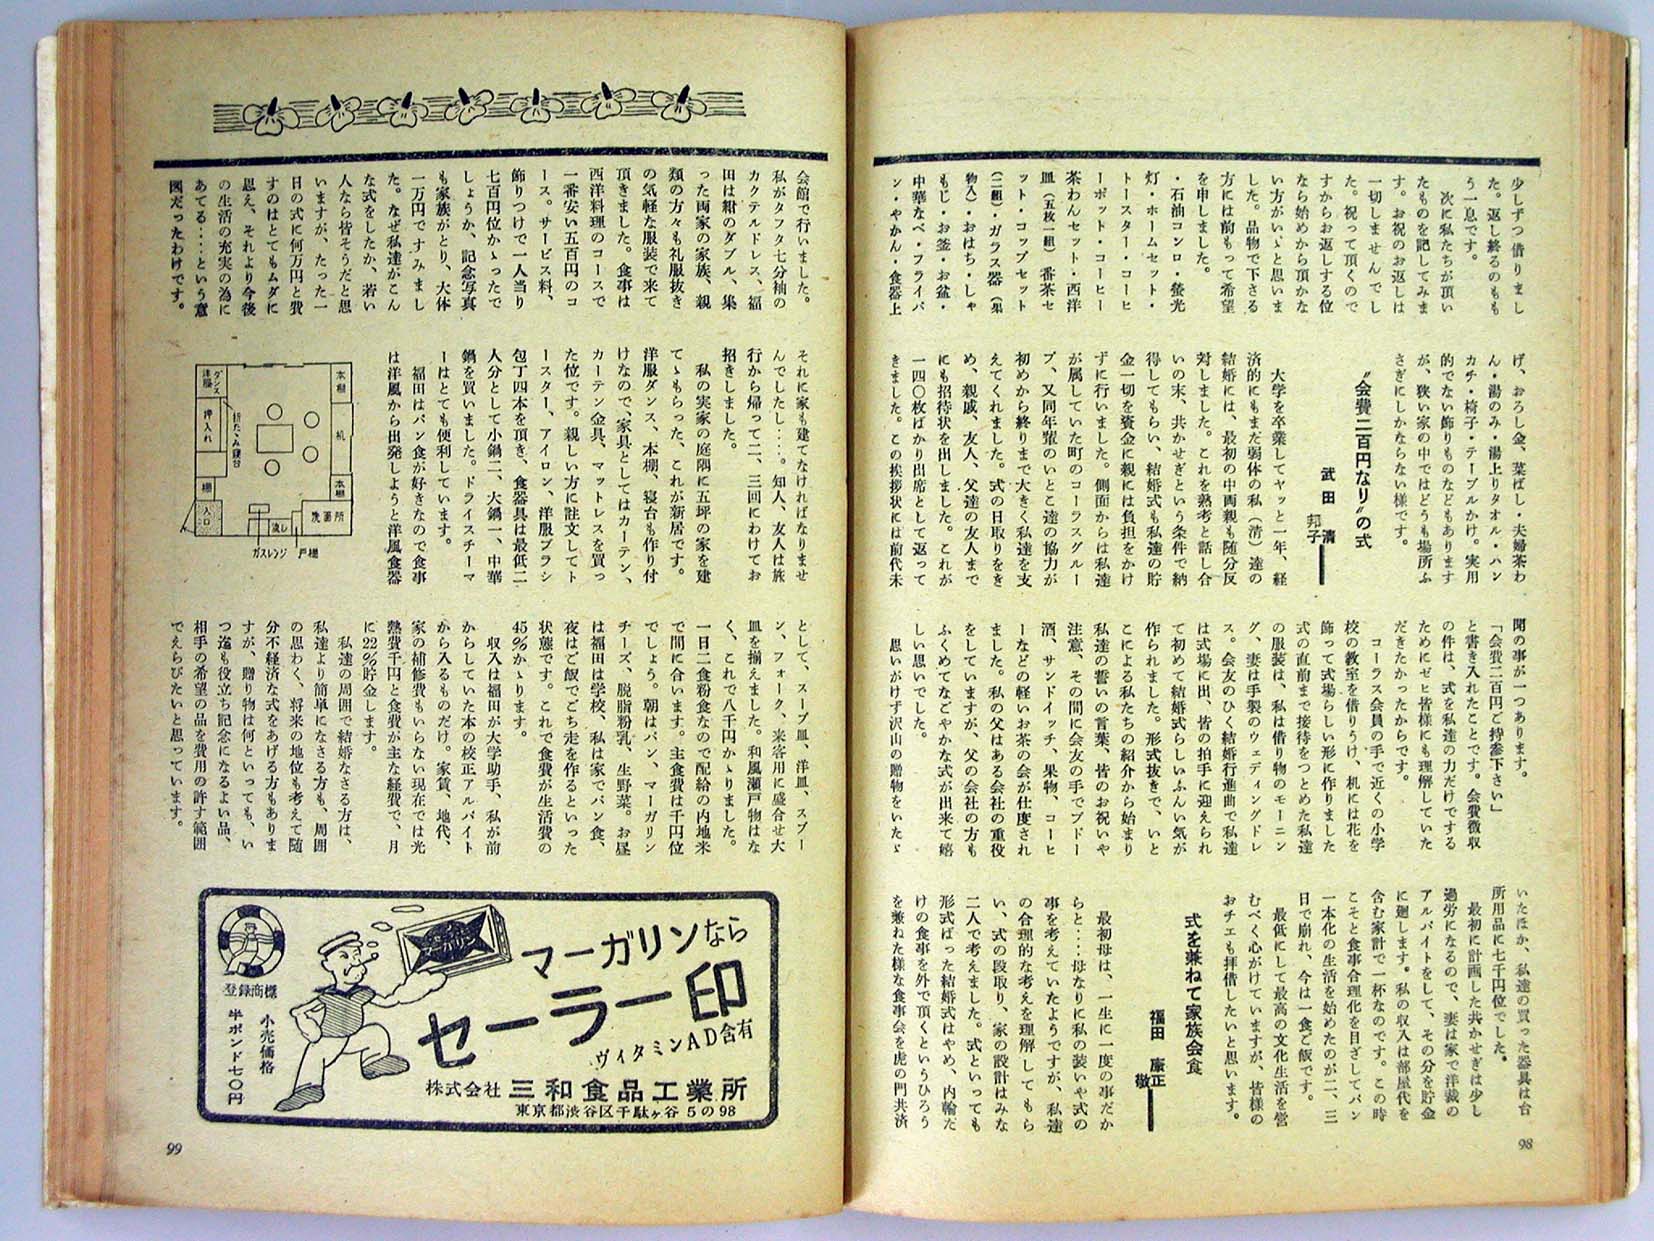 少しずつ借りまし
た。返し終るのもも
う一息です。
次に私たちが頂い
たものを記してみま
す。お祝のお返しは
一切しませんでし
た。祝って頂くので
すからお返しする位
なら始めから頂かな
い方がいゝと思いま
した。品物で下さる
方には前もって希望
を申しました。
・石油コンロ・螢光
灯・ホームセット・
トースター・コーヒ
ーポット・コーヒー
茶わんセット・西洋
皿（五枚一組）番茶セ
ット・コップセット
（二組）・ガラス器（果
物入）・おはち・しゃ
もじ・お釜・お盆・
中華なべ・フライパ
ン・やかん・食器上
げ、おろし金、菜ばし・夫婦茶わ
ん・湯のみ・湯上りタオル・ハン
カチ・椅子・テーブルかけ。実用
的でない飾りものなどもあります
が、狭い家の中ではどうも場所ふ
さぎにしかならない様です。
〝会費二百円なり〟の式
武田 清
邦子
大学を卒業してヤッと一年、経
済的にもまだ弱体の私（清）達の
結婚には、最初の中両親も随分反
対しました。これを熟考と話し合
いの末、共かせぎという条件で納
得してもらい、結婚式も私達の貯
金一切を資金に親には負担をかけ
ずに行いました。側面からは私達
が属していた町のコーラスグルー
プ、又同年輩のいとこ達の協力が
初めから終りまで大きく私達を支
えてくれました。式の日取りをき
め、親戚、友人、父達の友人まで
にも招待状を出しました。これが
一四〇枚ばかり出席として返って
きました。この挨拶状には前代未
聞の事が一つあります。
「会費二百円ご持参下さい」
と書き入れたことです。会費徴収
の件は、式を私達の力だけでする
ためにゼヒ皆様にも理解していた
だきたかったからです。
コーラス会員の手で近くの小学
校の教室を借りうけ、机には花を
飾って式場らしい形に作りました
式の直前まで接待をつとめた私達
の服装は、私は借り物のモーニン
グ、妻は手製のウェディングドレ
ス。会友のひく結婚行進曲で私達
は式場に出、皆の拍手に迎えられ
て初めて結婚式らしいふんい気が
作られました。形式抜きで、いと
こによる私たちの紹介から始まり
私達の誓いの言葉、皆のお祝いや
注意、その間に会友の手でブドー
酒、サンドイッチ、果物、コーヒ
ーなどの軽いお茶の会が仕度され
ました。私の父はある会社の重役
をしていますが、父の会社の方も
ふくめてなごやかな式が出来て嬉
しい思いでした。
思いがけず沢山の贈物をいたゞ
いたほか、私達の買った器具は台
所用品に七千円位でした。
最初に計画した共かせぎは少し
過労になるので、妻は家で洋裁の
アルバイトをして、その分を貯金
に廻します。私の収入は部屋代を
含む家計で一杯なのです。この時
こそと食事合理化を目ざしてパン
一本化の生活を始めたのが二、三
日で崩れ、今は一食ご飯です。
最低にして最高の文化生活を営
むべく心がけていますが、皆様の
おチエも拝借したいと思います。
式を兼ねて家族会食
福田 康正
敬
最初母は、一生に一度の事だか
らと‥‥母なりに私の装いや式の
事を考えていたようですが、私達
の合理的な考えを理解してもら
い、式の段取り、家の設計はみな
二人で考えました。式といっても
形式ばった結婚式はやめ、内輪だ
けの食事を外で頂くというひろう
を兼ねた様な食事会を虎の門共済
98
会館で行いました。
私がタフタ七分袖の
カクテルドレス、福
田は紺のダブル、集
った両家の家族、親
類の方々も礼服抜き
の気軽な服装で来て
頂きました。食事は
西洋料理のコースで
一番安い五百円のコ
ース。サービス料、
飾りつけで一人当り
七百円位かゝったで
しょうか、記念写真
も家族がとり、大体
一万円ですみまし
た。なぜ私達がこん
な式をしたか、若い
人なら皆そうだと思
いますが、たった一
日の式に何万円と費
すのはとてもムダに
思え、それより今後
の生活の充実の為に
あてる‥‥という意
図だったわけです。
それに家も建てなければなりませ
んでしたし‥‥。知人、友人は旅
行から帰って二、三回にわけてお
招きしました。
私の実家の庭隅に五坪の家を建
てゝもらった、これが新居です。
洋服ダンス、本棚、寝台も作り付
けなので、家具としてはカーテン、
カーテン金具、マットレスを買っ
た位です。親しい方に註文してト
ースター、アイロン、洋服ブラシ
包丁四本を頂き、食器具は最低二
人分として小鍋二、大鍋一、中華
鍋を買いました。ドライスチーマ
ーはとても便利しています。
福田はパン食が好きなので食事
は洋風から出発しようと洋風食器
本棚
机
本棚
洗面所
戸棚
流し
ガスレンジ
洋服ダンス
押入れ
折たゝみ寝台
棚
入口
として、スープ皿、洋皿、スプー
ン、フォーク、来客用に盛合せ大
皿を揃えました。和風瀬戸物はな
く、これで八千円かゝりました。
一日二食粉食なので配給の内地米
で間に合います。主食費は千円位
でしょう。朝はパン、マーガリン
チーズ、脱脂粉乳、生野菜。お昼
は福田は学校、私は家でパン食、
夜はご飯でごち走を作るといった
状態です。これで食費が生活費の
45%かゝります。
収入は福田が大学助手、私が前
からしていた本の校正アルバイト
から入るものだけ。家賃、地代、
家の補修費もいらない現在では光
熱費千円と食費が主な経費で、月
に22%貯金します。
私達の周囲で結婚なさる方は、
私達より簡単になさる方も、周囲
の思わく、将来の地位も考えて随
分不経済な式をあげる方もありま
すが、贈り物は何といっても、い
つ迄も役立ち記念になるよい品、
相手の希望の品を費用の許す範囲
でえらびたいと思っています。
マーガリンなら
セーラー印
ヴィタミンAD含有
株式会社 三和食品工業所
東京都渋谷区千駄ヶ谷5の98
登録商標
小売価格
半ポンド七〇円
マーガリン
99